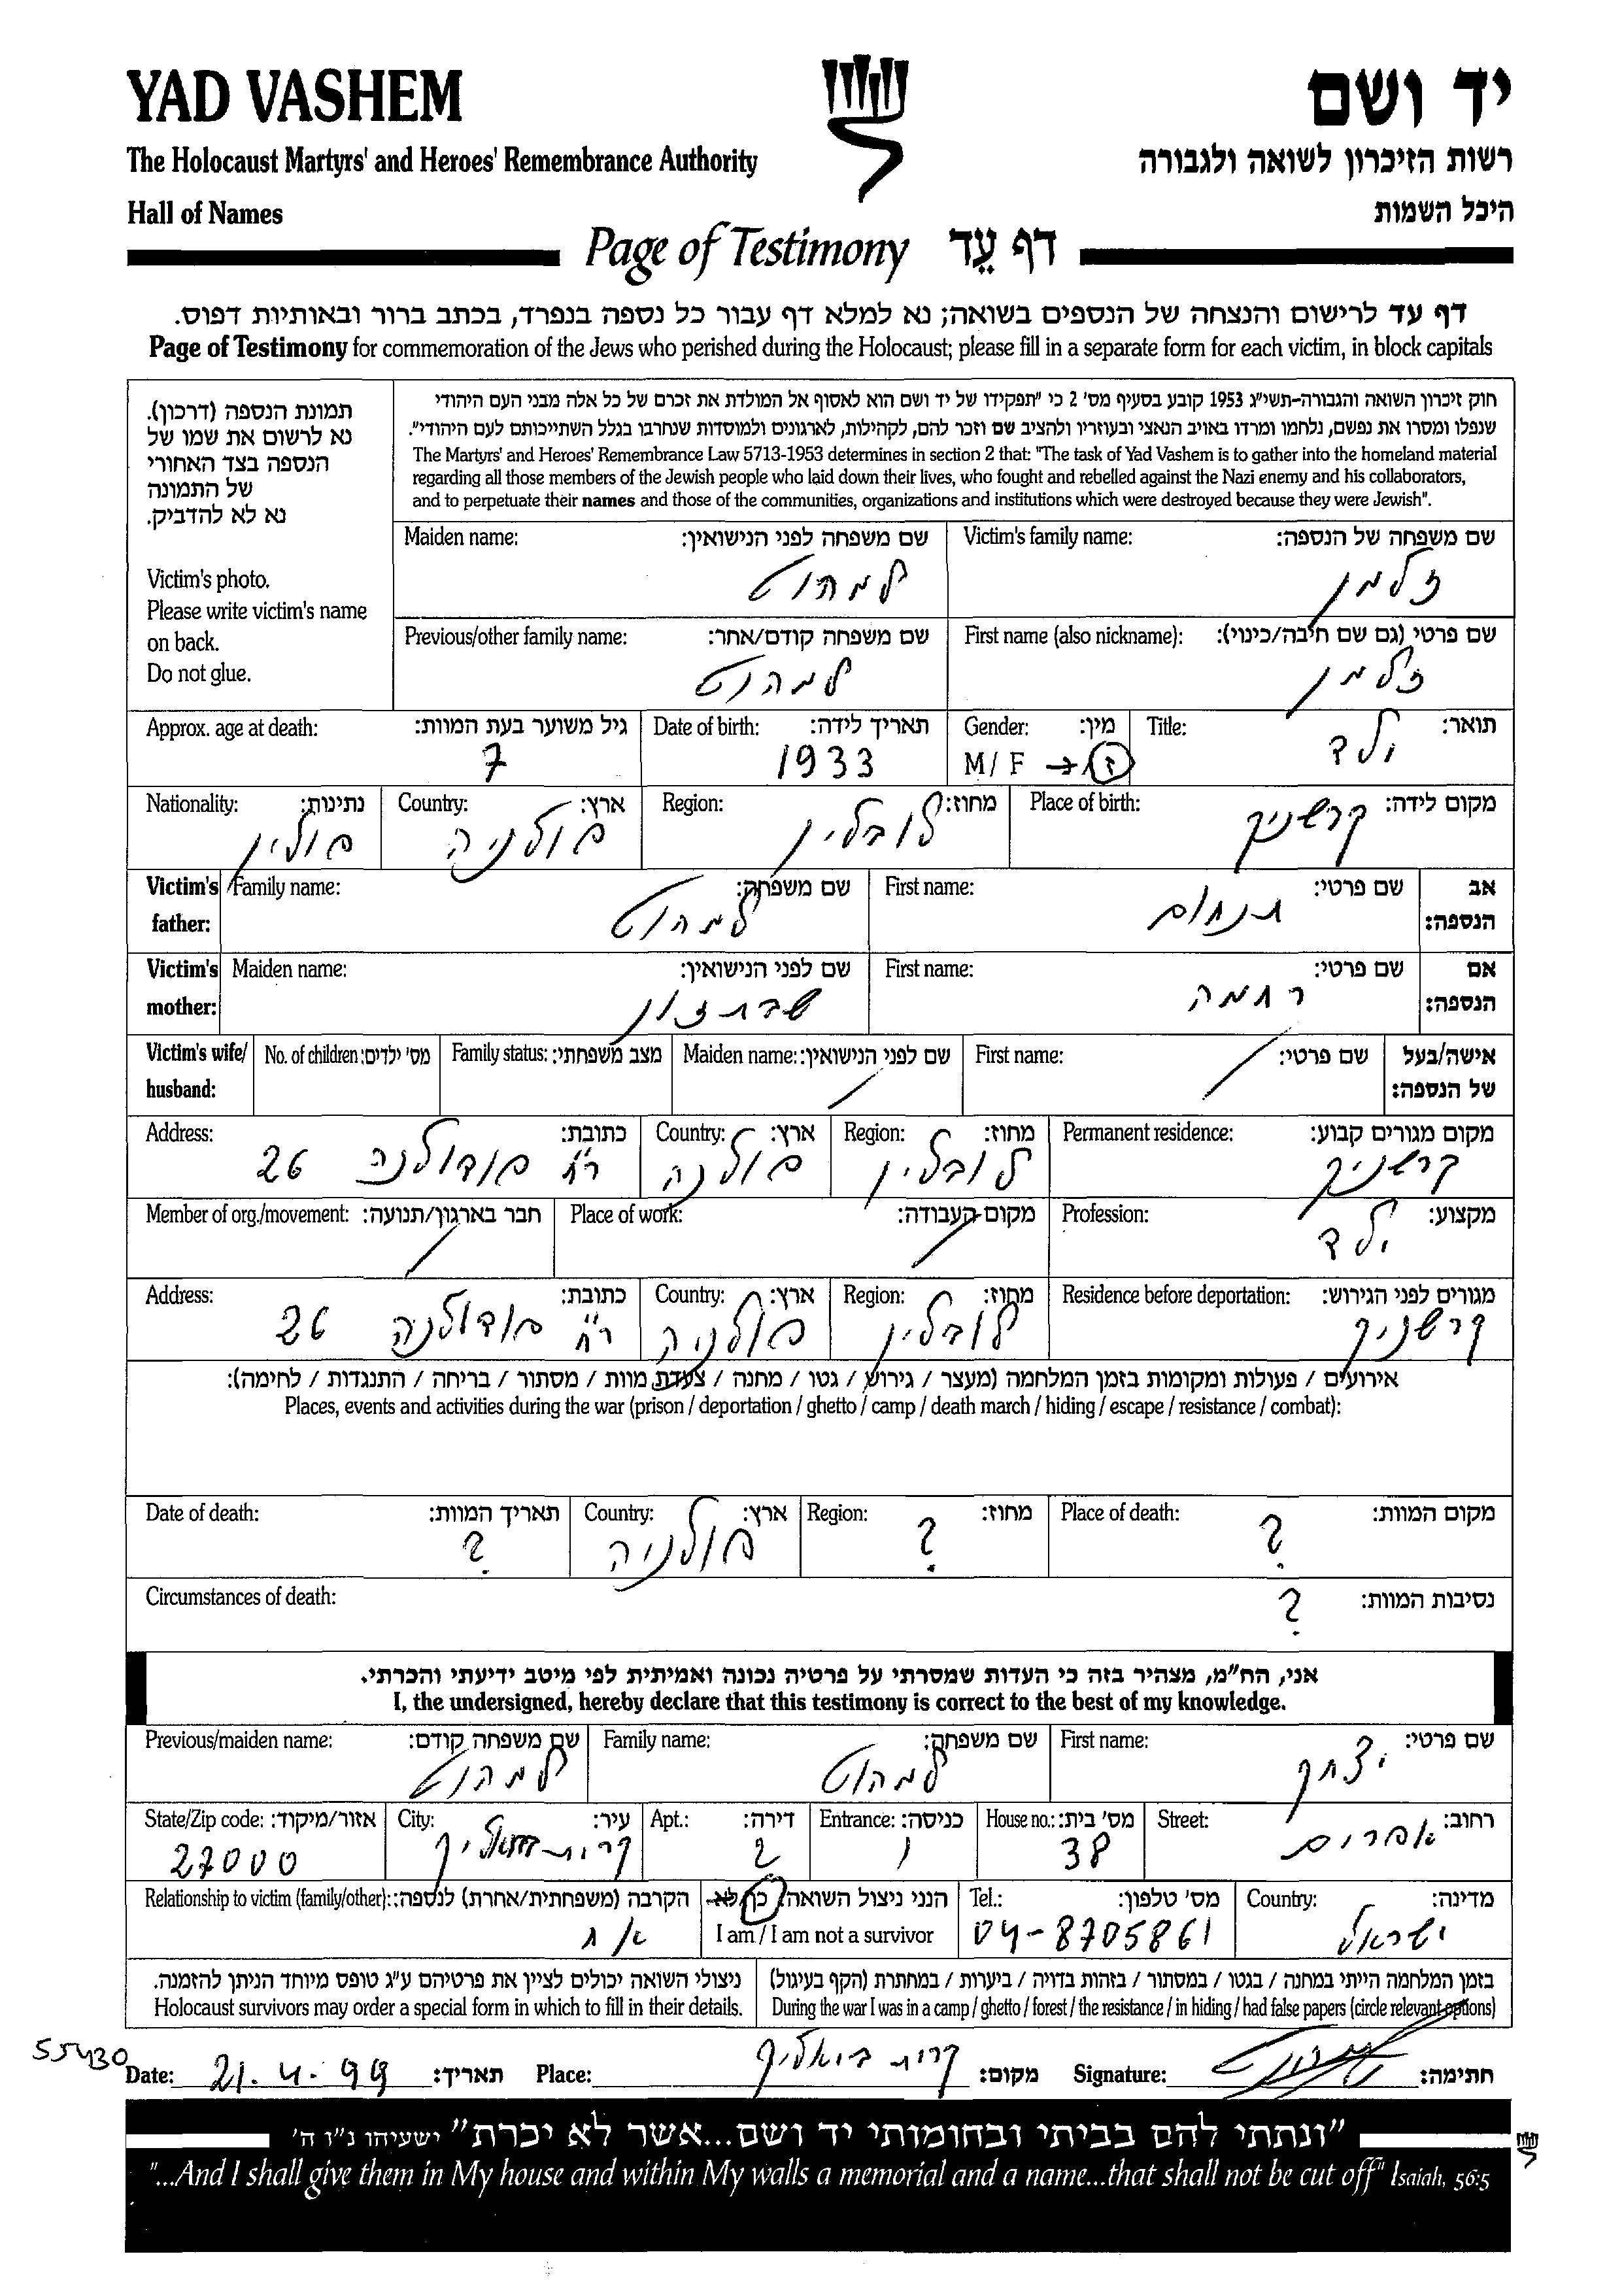 YAD VASHEM
יד ושם
The Holocaust Martyrs' and Heroes' Remembrance Authority
רשות הזיכרון לשואה ולגבורה
Hall of Names
היכל השמות
Page of Testimony דף עֵד
דף עד לרישום והנצחה של הנספים בשואה; נא למלא דף עבור כל נספה בנפרד, בכתב ברור ובאותיות דפוס.
Page of Testimony for commemoration of the Jews who perished during the Holocaust; please fill in a separate form for each victim, in block capitals
תמונת הנספה (דרכון).
נא לרשום את שמו של
הנספה בצד האחורי
של התמונה
נא לא להדביק.
Victim's photo.
Please write victim's name
on back.
Do not glue.
חוק זיכרון השואה והגבורה-תשי"ג 1953 קובע בסעיף מס' 2 כי "תפקידו של יד ושם הוא לאסוף אל המולדת את זכרם של כל אלה מבני העם היהודי
שנפלו ומסרו את נפשם, נלחמו ומרדו באויב הנאצי ובעוזריו ולהציב שם וזכר להם, לקהילות, לארגונים ולמוסדות שנחרבו בגלל השתייכותם לעם היהודי".
The Martyrs' and Heroes' Remembrance Law 5713-1953 determines in section 2 that: "The task of Yad Vashem is to gather into the homeland material
regarding all those members of the Jewish people who laid down their lives, who fought and rebelled against the Nazi enemy and his collaborators,
and to perpetuate their names and those of the communities, organizations and institutions which were destroyed because they were Jewish".
Victim's family name: שם משפחה של הנספה:
זלמן
Maiden name: שם משפחה לפני הנישואין:
למהוט
First name (also nickname): שם פרטי (גם שם חיבה/כינוי):
זלמן
Previous/other family name: שם משפחה קודם/אחר:
למהוט
Title: תואר:
ילד
Gender: מין:
M/ F → ז
Date of birth: תאריך לידה:
1933
Approx. age at death: גיל משוער בעת המוות:
7
Place of birth: מקום לידה:
קרשניק
Region: מחוז:
לובלין
Country: ארץ:
פולניה
Nationality: נתינות:
פולין
אב הנספה: Victim's father:
First name: שם פרטי:
תנחום
Family name: שם משפחה:
למהוט
אם הנספה: Victim's mother:
First name: שם פרטי:
רחמה
Maiden name: שם לפני הנישואין:
שבתזון
אישה/בעל של הנספה: Victim's wife/ husband:
First name: שם פרטי:
Maiden name: שם לפני הנישואין:
Family status: מצב משפחתי:
No. of children: מס' ילדים:
Permanent residence: מקום מגורים קבוע:
קרשניק
Region: מחוז:
לובלין
Country: ארץ:
פולנה
Address: כתובת:
רח' פודולנה 26
Profession: מקצוע:
ילד
Place of work: מקום העבודה:
Member of org./movement: חבר בארגון/תנועה:
Residence before deportation: מגורים לפני הגירוש:
קרשניק
Region: מחוז:
לובלין
Country: ארץ:
פולניה
Address: כתובת:
רח' פודולנה 26
אירועים / פעולות ומקומות בזמן המלחמה (מעצר / גירוש / גטו / מחנה / צעדת מוות / מסתור / בריחה / התנגדות / לחימה):
Places, events and activities during the war (prison / deportation / ghetto / camp / death march / hiding / escape / resistance / combat):
Place of death: מקום המוות:
?
Region: מחוז:
?
Country: ארץ:
פולניה
Date of death: תאריך המוות:
?
Circumstances of death: נסיבות המוות:
?
אני, הח"מ, מצהיר בזה כי העדות שמסרתי על פרטיה נכונה ואמיתית לפי מיטב ידיעתי והכרתי.
I, the undersigned, hereby declare that this testimony is correct to the best of my knowledge.
First name: שם פרטי:
יצחק
Family name: שם משפחה:
למהוט
Previous/maiden name: שם משפחה קודם:
למהוט
Street: רחוב:
אפרים
House no.: מס' בית:
38
Entrance: כניסה:
1
Apt.: דירה:
2
City: עיר:
קרית ביאליק
State/Zip code: אזור/מיקוד:
27000
Country: מדינה:
ישראל
Tel.: מס' טלפון:
04-8705861
הנני ניצול השואה: כן/לא
I am / I am not a survivor
Relationship to victim (family/other): הקרבה (משפחתית/אחרת) לנספה:
אח
בזמן המלחמה הייתי במחנה / בגטו / במסתור / בזהות בדויה / ביערות / במחתרת (הקף בעיגול)
During the war I was in a camp / ghetto / forest / the resistance / in hiding / had false papers (circle relevant options)
ניצולי השואה יכולים לציין את פרטיהם ע"ג טופס מיוחד הניתן להזמנה.
Holocaust survivors may order a special form in which to fill in their details.
55430
Date: 21.4.99 תאריך: Place: קרית ביאליק מקום: Signature: חתימה:
"ונתתי להם בביתי ובחומותי יד ושם...אשר לא יכרת" ישעיהו נ"ו ה'
"...And I shall give them in My house and within My walls a memorial and a name...that shall not be cut off" Isaiah, 56:5